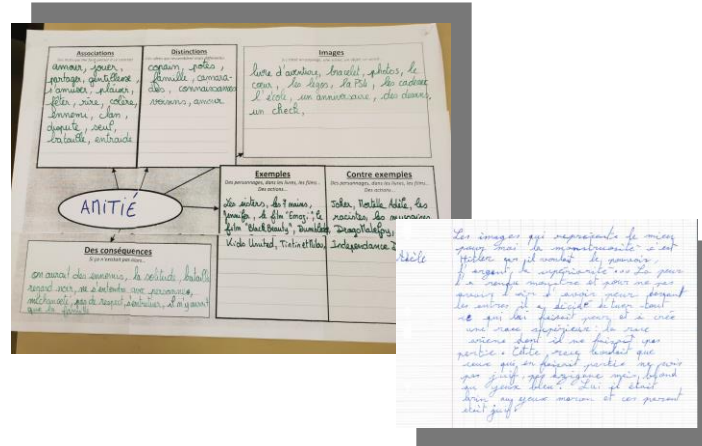 Associations
amour, jouer,
partager, gentillesse,
s'amuser, plaisir,
fêter, rire, colère,
ennemi, clan,
dispute, seul,
bataille, entraide
Distinctions
copain, potes,
famille, camara-
des, connaissances
voisins, amour
Images
livre d'aventure, bracelet, photos, le
cœur, les legos, la PS4, les cadeaux
l'école, un anniversaire, des dessins,
un check,
AMITIÉ
Exemples
Des personnages, dans les livres, les films...
Des actions...
Les sisters, les 7 nains,
Jennifer, le film "Emoji", le
film "Black Beauty", Dumbledore
Kids United, Tintin et Milou,
Contre exemples
Des personnages, dans les livres, les films...
Des actions...
Joker, Mortelle Adèle, les
racistes, les
Drago Malefoy,
Independance D
Des conséquences
Si ça n'existait pas nous...
on aurait des ennemis, la solitude, bataille
regard noir, ne s'entendre avec personne,
méchanceté, pas de respect, s'entretuer, il n'y aurait
que la famille
Adèle
Les images qui représente le mieux
pour moi la monstruosité c'est
Hitler car il voulait le pouvoir,
l'argent la supériorité... La peur
l'a rendu monstre et pour ne pas
avoir peur
les autres il a décidé de tuer tout
ce qui lui faisait peur et a créé
une race supérieur : la race
arienne dont il ne faisait pas
partie. Cette race voulait que
ceux qui en faisait partie ne sois
pas juif, pas tzigane mais blond
au yeux bleu. Lui il était
brin au yeux marron et ces parent
était juif.